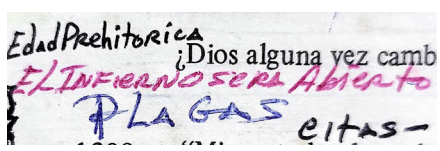 Edad Prehitorica
¿Dios alguna vez camb
El Infierno sera Abierto
PLAGAS
citas-